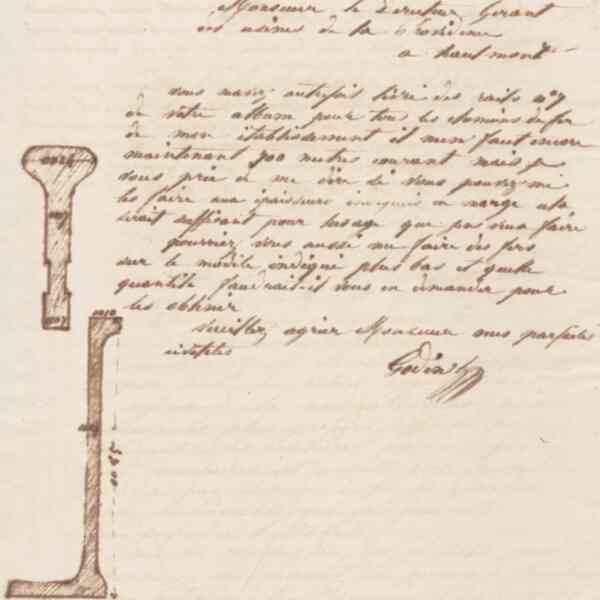 Monsieur le Directeur Gérant
des usines de la Providence
a hautmont
vous mavez autrefois livré des rails n°7
de votre album pour tous les chemins de fer
de mon établissement il men faut encore
maintenant 300 mètres courant mais je
vous prie de me dire si vous pouvez me
les faire aux épaisseurs indiquées en marge cela
serait suffisant pour lusage que jen veux faire
pourriez vous aussi me faire des fers
sur le modèle indiqué plus bas et quelle
quantité faudrait-il vous en demander pour
les obtenir
Veuillez agréer Monsieur mes parfaites
civilités
Godin